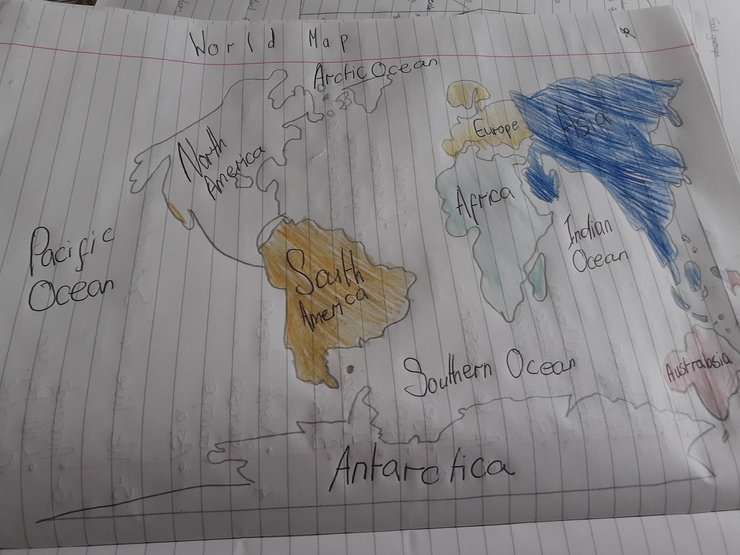 World Map
Arctic Ocean
North
America
Europe
Asia
Africa
Pacific
Ocean
Indian
Ocean
South
America
Southern Ocean
Australasia
Antarctica